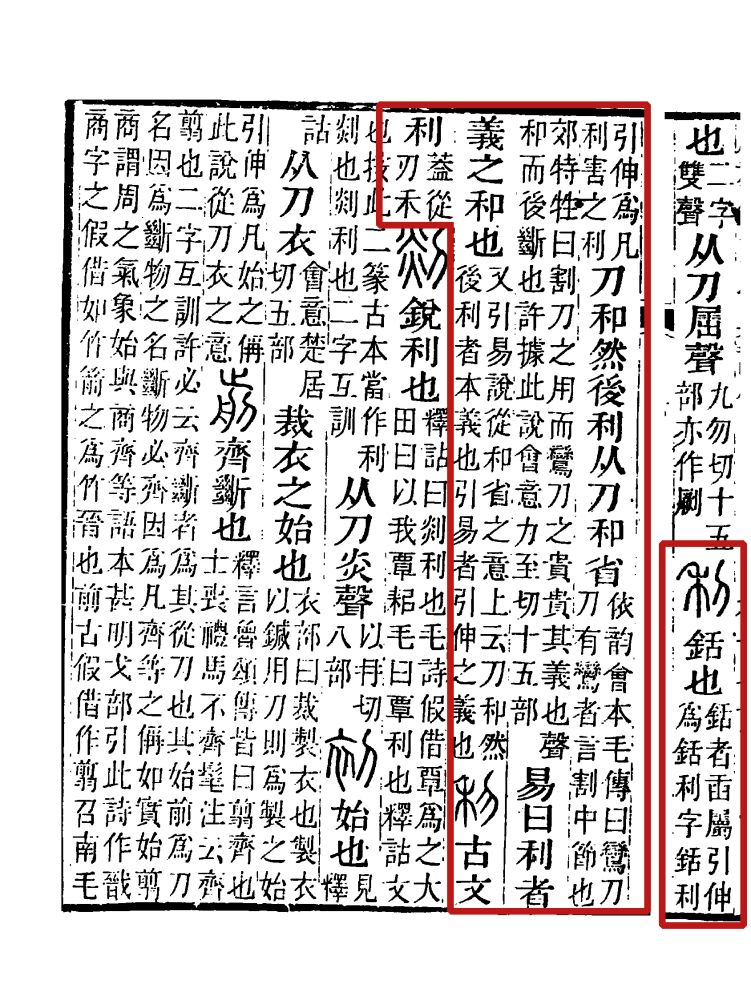 也二字雙聲从刀屈聲九勿切十五部亦作𠜾利銛也銛者臿屬引伸爲銛利字銛利
引伸爲凡利害之利刀和然後利从刀和省依韵會本毛傳曰鸞刀刀有鸞者言割中節也
郊特牲曰割刀之用而鸞刀之貴貴其義也聲和而後斷也許據此說會意力至切十五部易曰利者
義之和也又引易說從和省之意上云刀和然後利者本義也引易者引伸之義也𥝢古文
利蓋從刃禾剡銳利也釋詁曰剡利也毛詩假借覃爲之大田曰以我覃耜毛曰覃利也釋詁文
也按此二篆古本當作利剡也剡利也二字互訓从刀炎聲以冉切八部初始也見釋
詁从刀衣會意楚居切五部裁衣之始也衣部曰裁製衣也製衣以鍼用刀則爲製之始
引伸爲凡始之偁此說從刀衣之意前齊斷也釋言魯頌傳皆曰翦齊也士喪禮馬不齊髦注云齊
翦也二字互訓許必云齊斷者爲其從刀也其始前爲刀名因爲斷物之名斷物必齊因爲凡齊等之偁如實始翦
商謂周之氣象始與商齊等語本甚明戈部引此詩作戩商字之假借如竹箭之爲竹晉也前古假借作翦召南毛